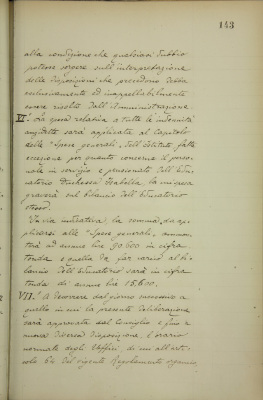 143
alla condizione che qualsiasi dubbio
potesse sorgere sull'interpretazione
delle disposizioni che precedono debba
esclusivamente ed inappellabilmente
essere risolto dall'Amministrazione
VI.° La spesa relativa a tutte le indennità
anzidette sarà applicata al Capitolo
delle "Spese generali" dell'Istituto fatta
eccezione per quanto concerne il perso-
nale in servizio e pensionato dell'Edu-
catorio Duchessa Isabella la cui spesa
graverà sul bilancio dell'Educatorio
stesso.
In via indicativa la somma da ap-
plicarsi alle "Spese generali" ammon-
terà ad annue lire 90.600 in cifra
tonda e quella da far carico al bi-
lancio dell'Educatorio sarà in cifra
tonda di annue lire 15.600.
VII.° A decorrere dal giorno successivo a
quello in cui la presente deliberazione
sarà approvata dal Consiglio e fino a
nuova diversa disposizione, l'orario
normale degli Uffici di cui all'arti-
colo 64 del vigente Regolamento organico